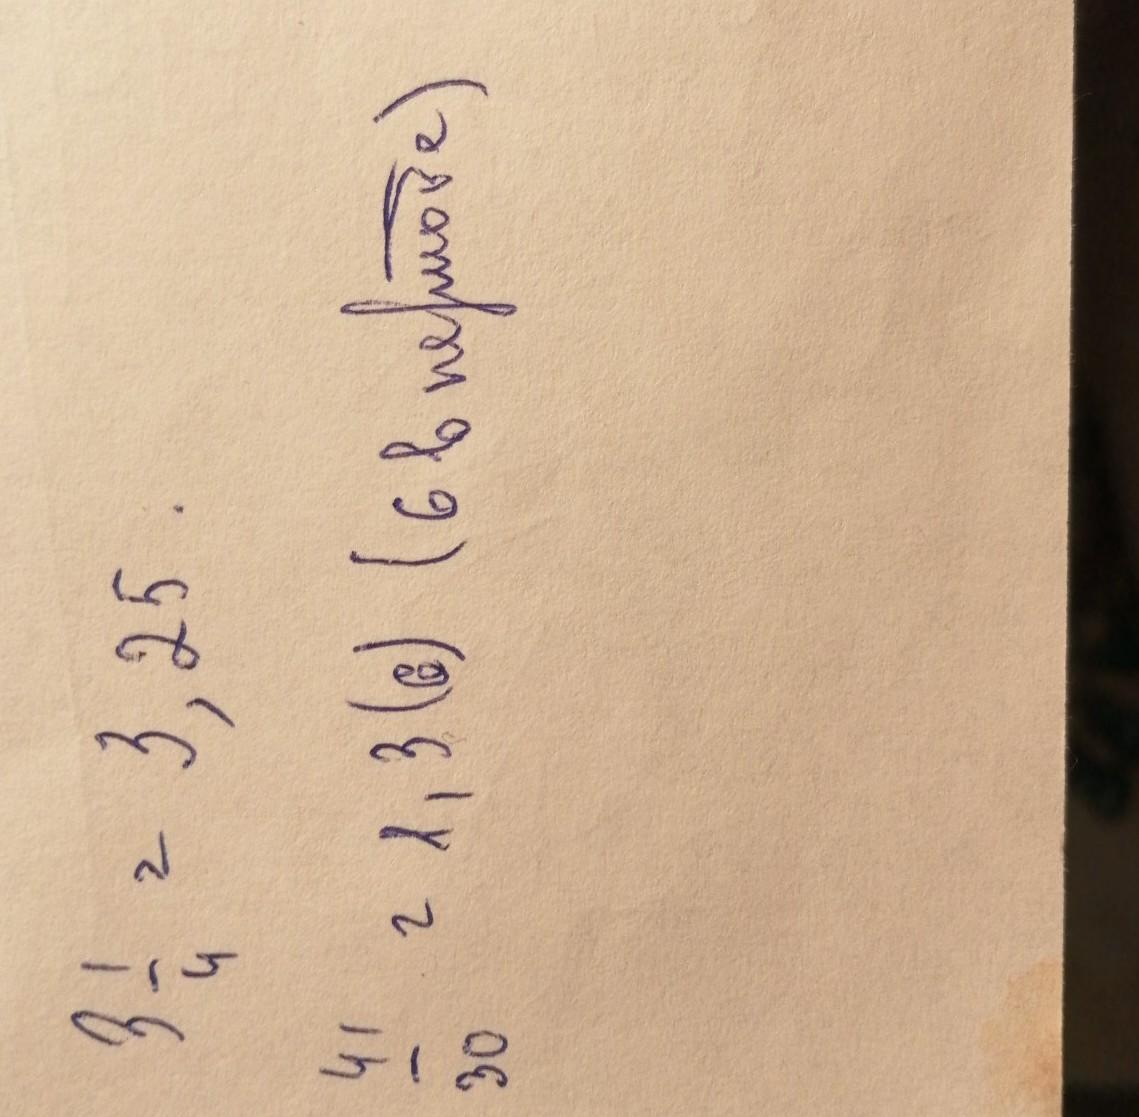 3 1/4 = 3,25.
41/30 = 1,3(6) (6 в периоде)